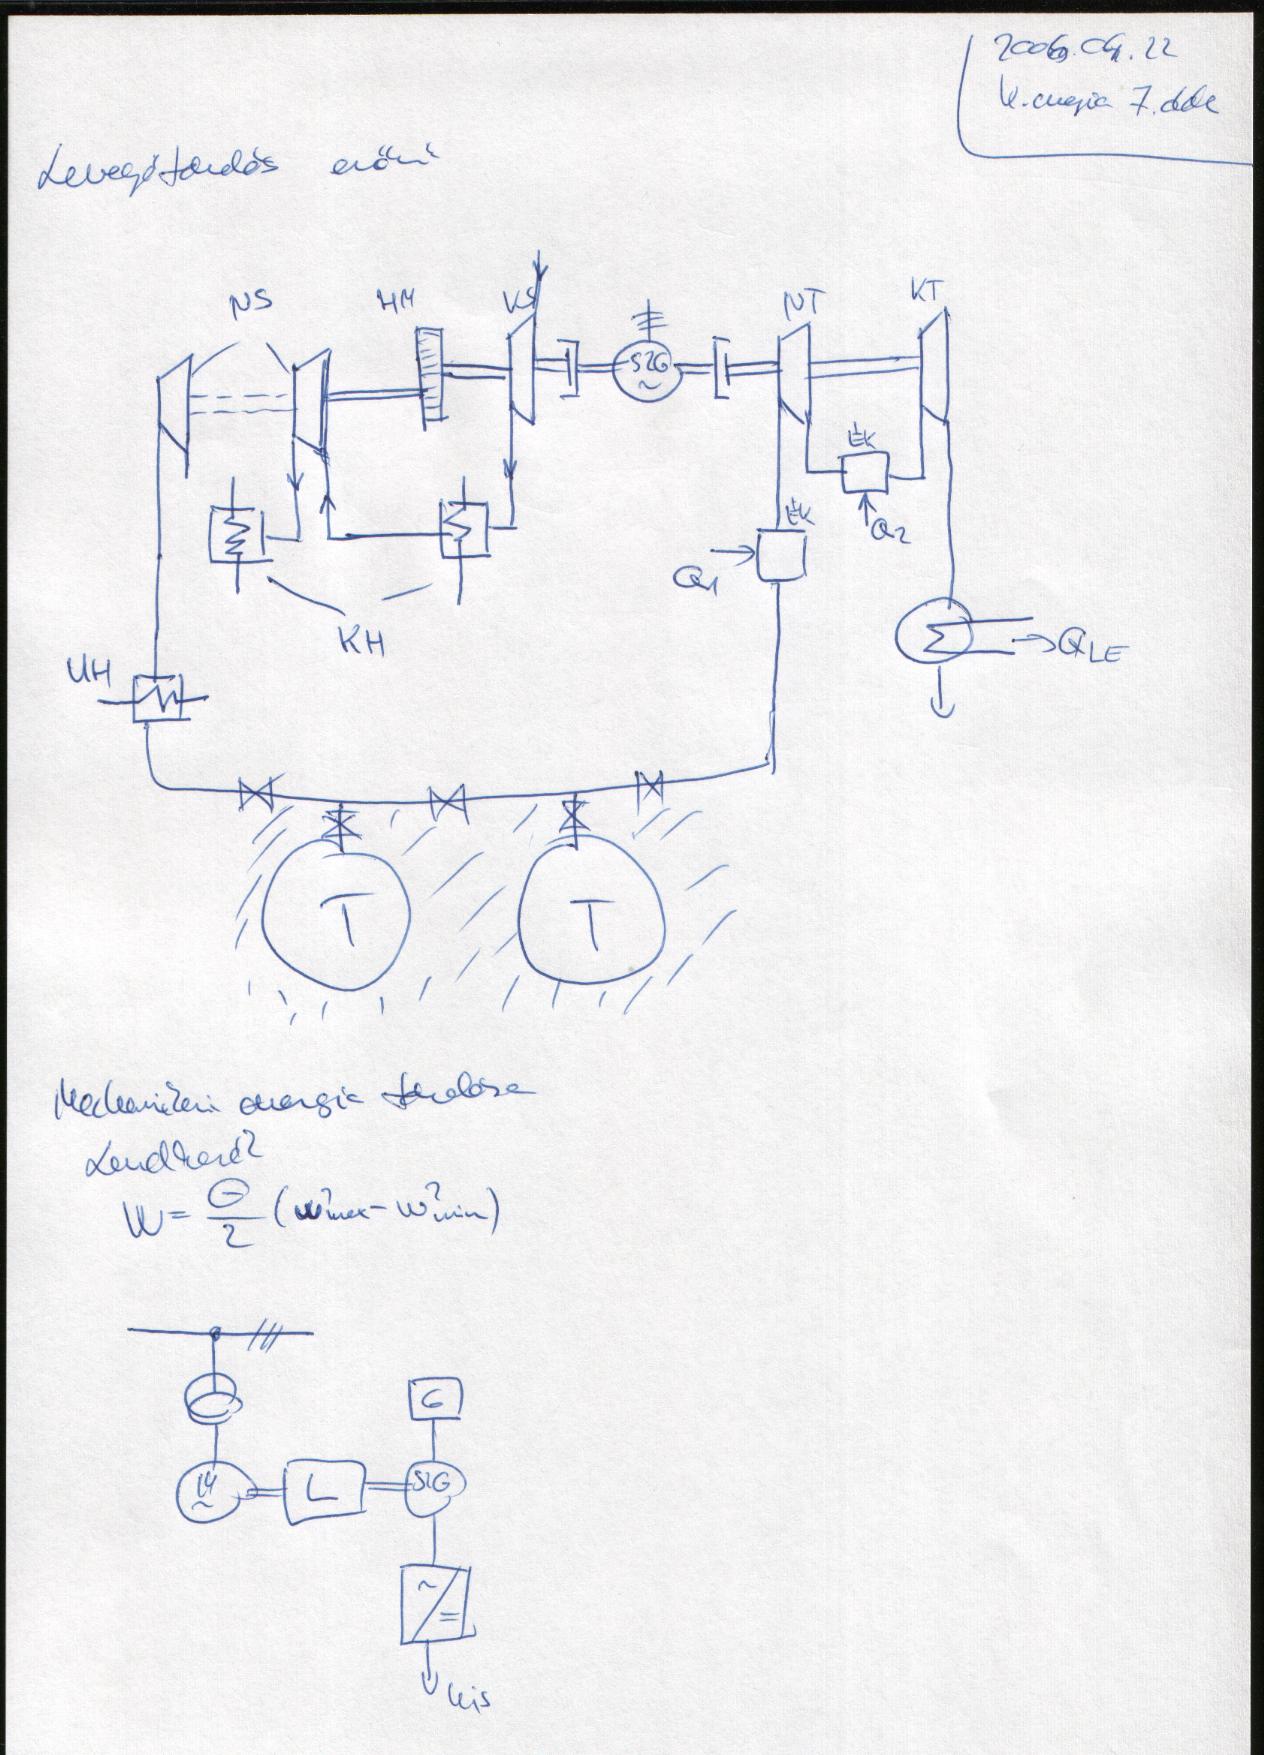 2006.04.22
V. energia 7. dok
Levegőtárolós erőmű
NS HM KS NT KT
SZG
~
ÉK
ÉK
Q2
Q1
KH
ÜH
QLE
T T
Mechanikai energia tárolása
Lendkerék
W = Θ/2 (ω²max - ω²min)
G
M
~
L
SZG
~
=
kis